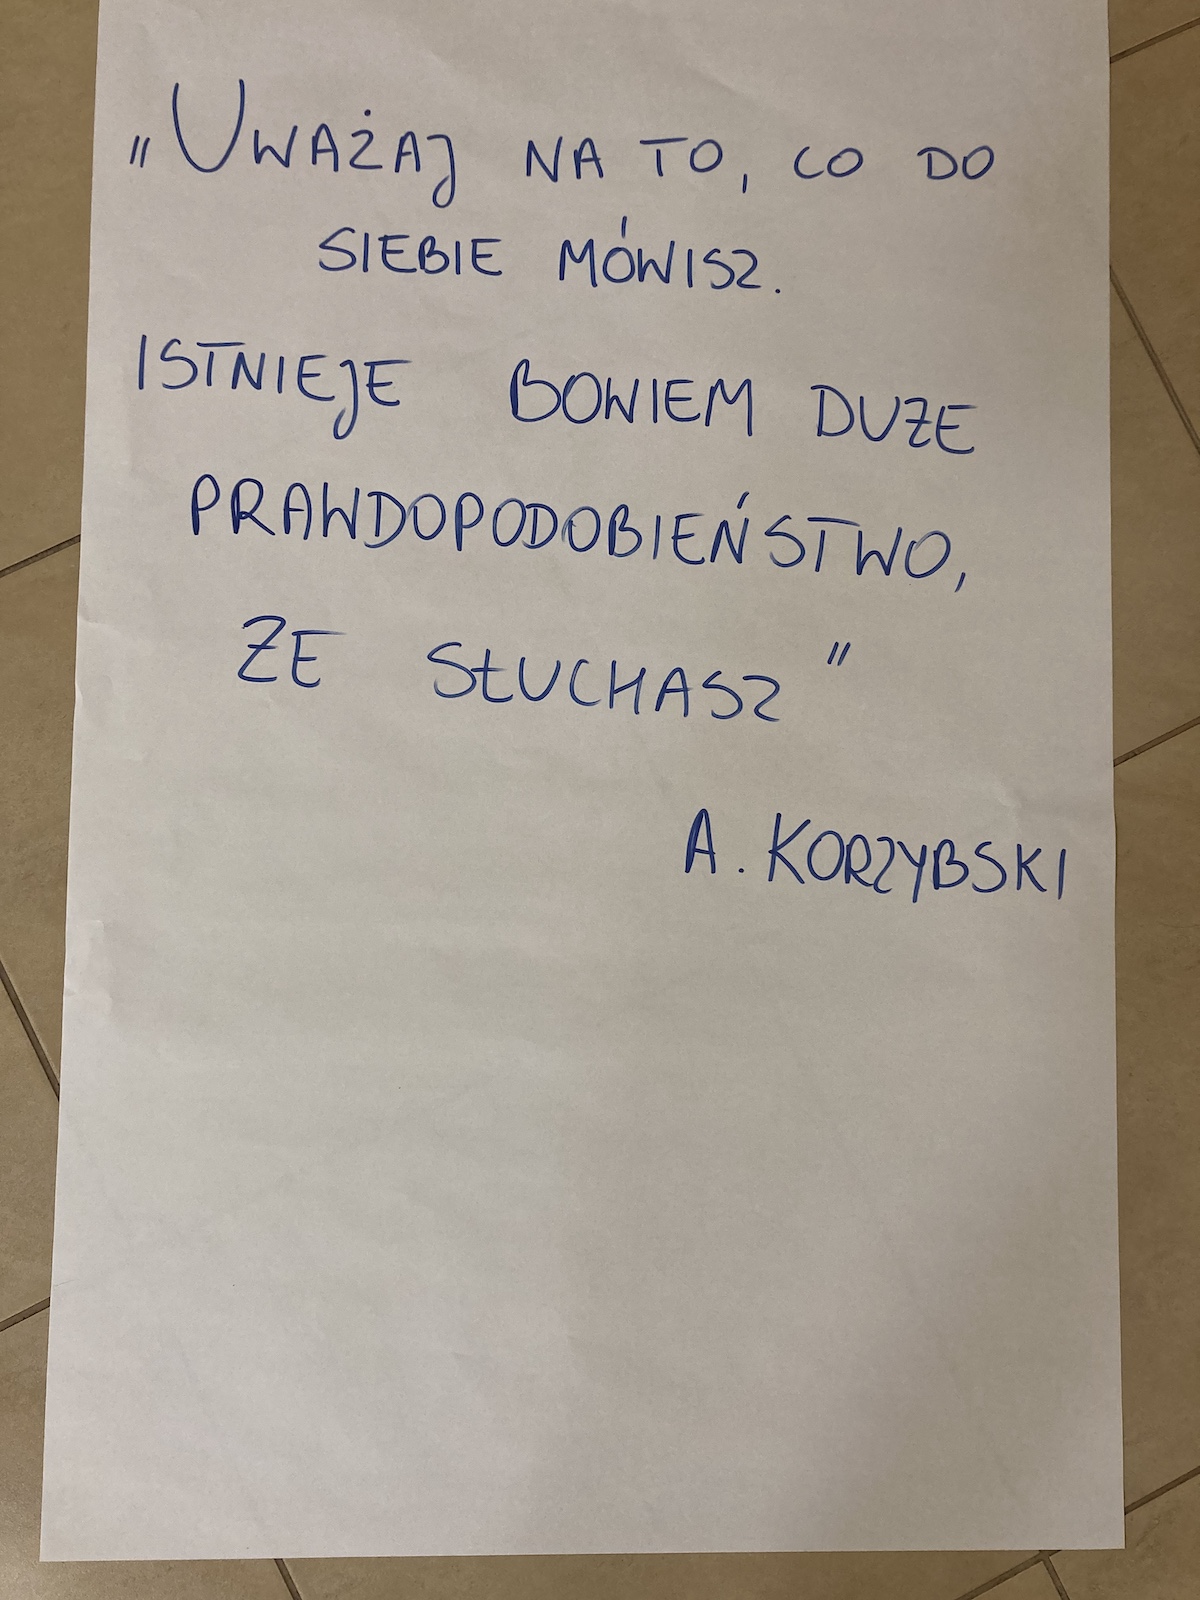 „UWAŻAJ NA TO, CO DO
SIEBIE MÓWISZ.
ISTNIEJE BOWIEM DUŻE
PRAWDOPODOBIEŃSTWO,
ŻE SŁUCHASZ”
A. KORZYBSKI